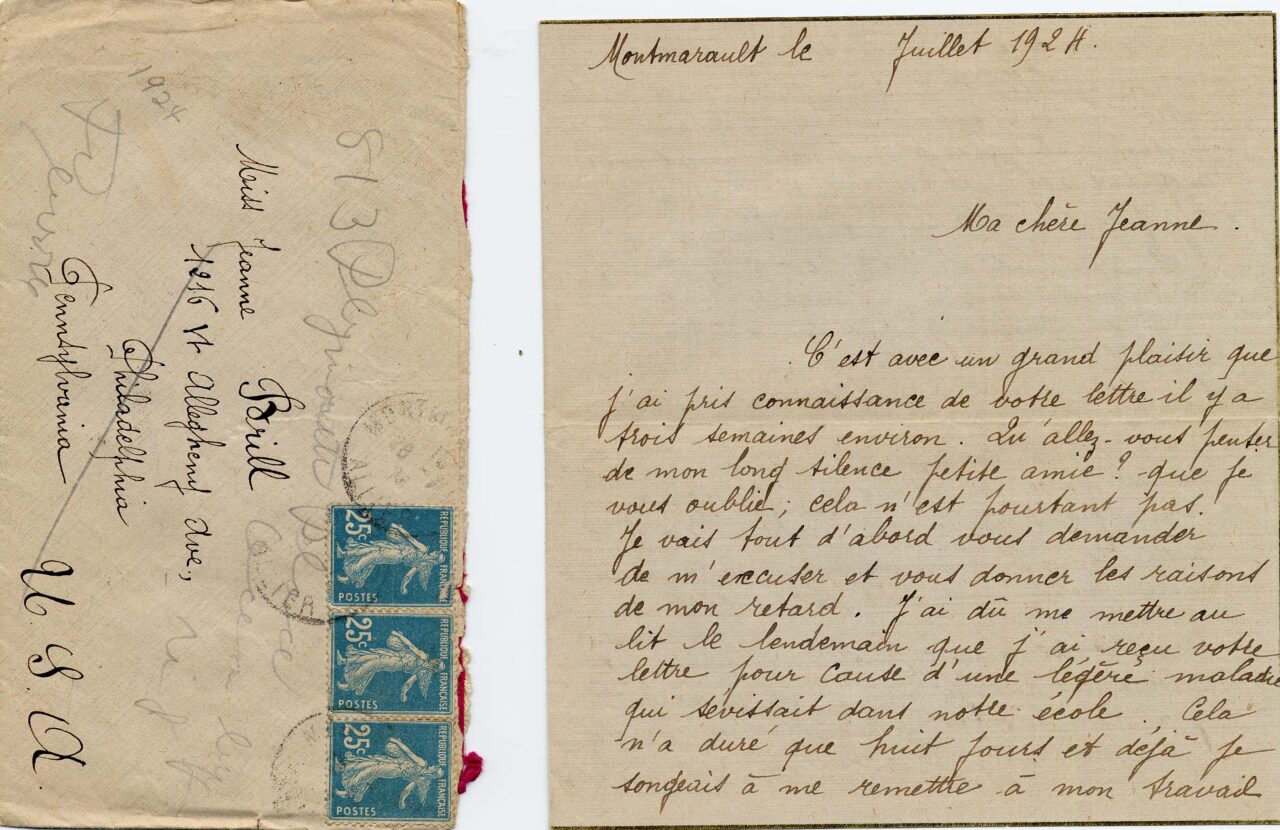 1924
Miss Jeanne Brill
1216 W Allegheny Ave,
Philadelphia
Pennsylvania
U. S. A
813
Place
N J
RÉPUBLIQUE FRANÇAISE
25c
POSTES
RÉPUBLIQUE FRANÇAISE
25c
POSTES
RÉPUBLIQUE FRANÇAISE
25c
POSTES
Montmarault le Juillet 1924.
Ma chère Jeanne.
C'est avec un grand plaisir que
j'ai pris connaissance de votre lettre il y a
trois semaines environ. Qu'allez-vous penser
de mon long silence petite amie? que je
vous oublie; cela n'est pourtant pas.
Je vais tout d'abord vous demander
de m'excuser et vous donner les raisons
de mon retard. J'ai dû me mettre au
lit le lendemain que j'ai reçu votre
lettre pour cause d'une légère maladie
qui sévissait dans notre école. Cela
n'a duré que huit jours et déjà je
songeais à me remettre à mon travail